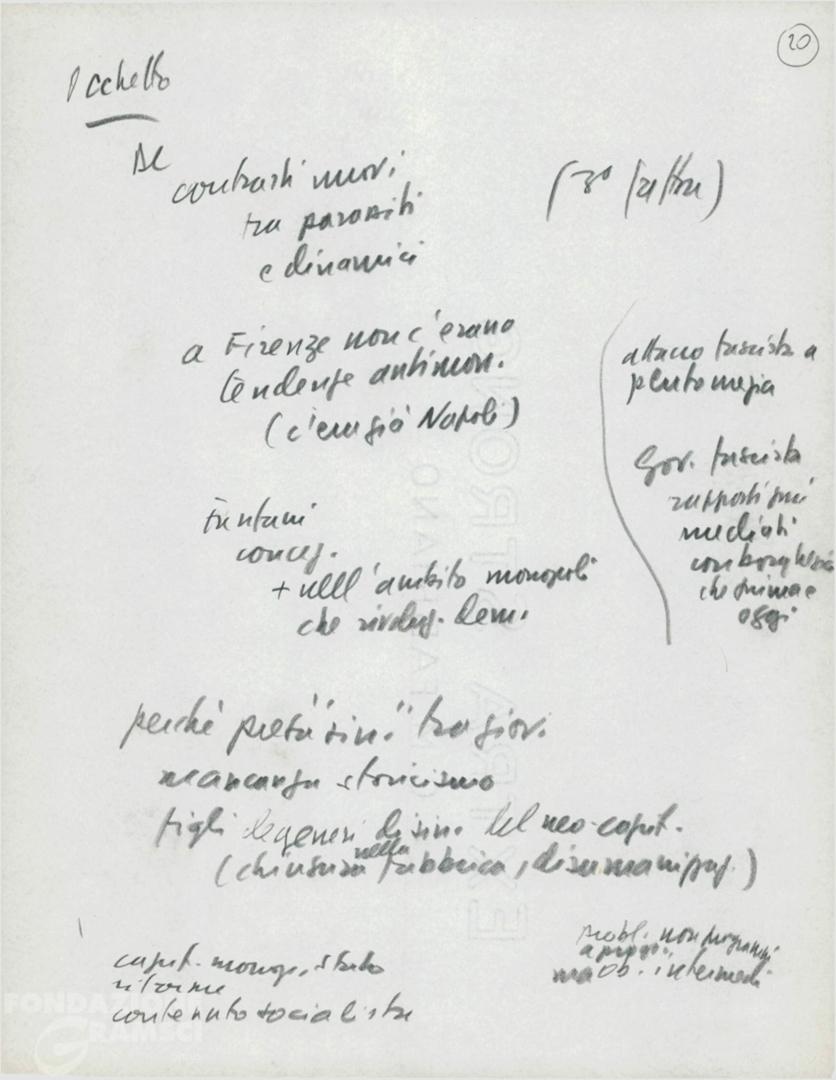 20
Occhetto
DC
contrasti nuovi
tra parassiti
e dinamici
a Firenze non c'erano
tendenze antimon.
(c'era già Napoli)
attacco fascista a
Gov. fascista
rapporti più
mediati
con borghesia
che prima e
oggi
Fanfani
concez.
+ nell'ambito monopoli
che rivoluz. dem.
perché presa "sin." tra giov.
mancanza storicismo
figli degeneri di sin. del neo-capit.
(chiusura nella fabbrica, disumanizzaz.)
probl. non programmi
ma ob. intermedi
capit. monop. stato
riforme
contenuto socialista
FONDAZIONE
GRAMSCI
EXTRA STRONG
FABRIANO